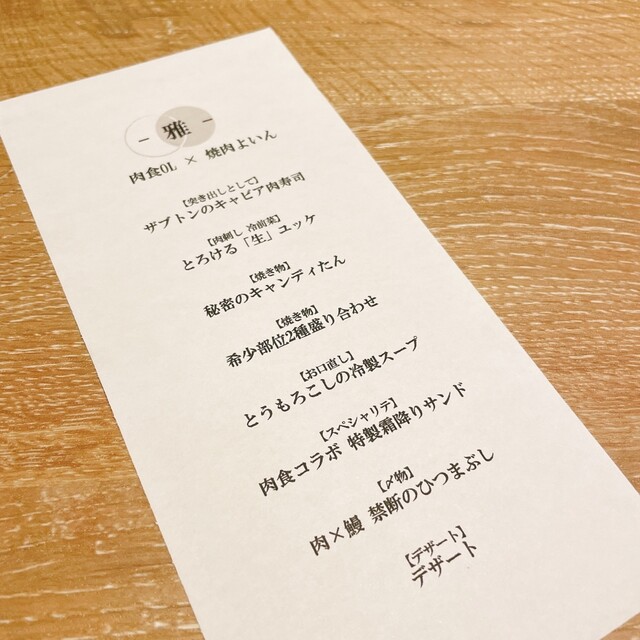 - 雅 -
肉食OL × 焼肉よいん
【突き出しとして】
ザブトンのキャビア肉寿司
【肉刺し 冷前菜】
とろける「生」ユッケ
【焼き物】
秘密のキャンディたん
【焼き物】
希少部位2種盛り合わせ
【お口直し】
とうもろこしの冷製スープ
【スペシャリテ】
肉食コラボ 特製霜降りサンド
【〆物】
肉×鰻 禁断のひつまぶし
【デザート】
デザート